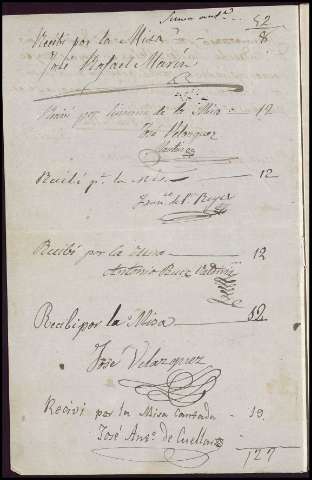 Suma antr. 52
Recibi por la Misa 8
José Rafael Marin
Recivi por limosna de la Misa - 12
José Velazquez
Recibi pr. la Misa 12
Franco. de P. Reyes
Recibi por la Misa 12
Antonio Ruiz
Recibi por la Misa 12
José Velazquez
Recivi por la Misa Cantada - 19
José Anto. de Cuellar
127